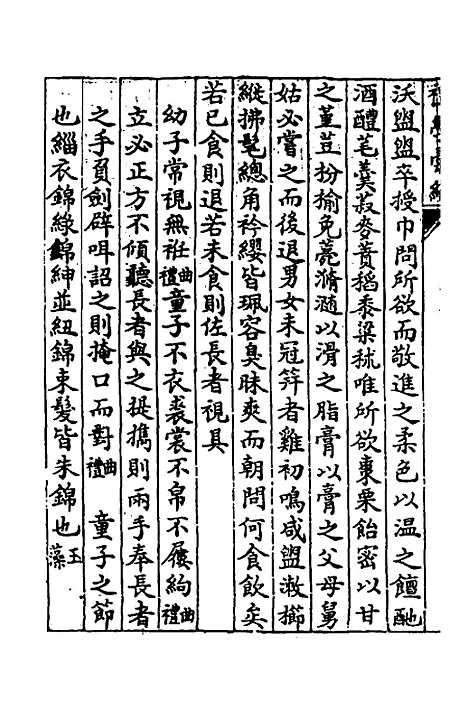 沃盥盥卒授巾問所欲而敬進之柔色以温之饘酏
酒醴芼羹菽麥蕡稻黍粱秫唯所欲棗栗飴蜜以甘
之堇荁枌榆免薧滫瀡以滑之脂膏以膏之父母舅
姑必嘗之而後退男女未冠笄者雞初鳴咸盥漱櫛
縰拂髦總角衿纓皆珮容臭昧爽而朝問何食飲矣
若已食則退若未食則佐長者視具
幼子常視無誑曲禮童子不衣裘裳不帛不屨絇曲禮
立必正方不傾聽長者與之提攜則兩手奉長者
之手負劍辟咡詔之則掩口而對曲禮 童子之節
也緇衣錦緣錦紳並紐錦束髮皆朱錦也玉藻